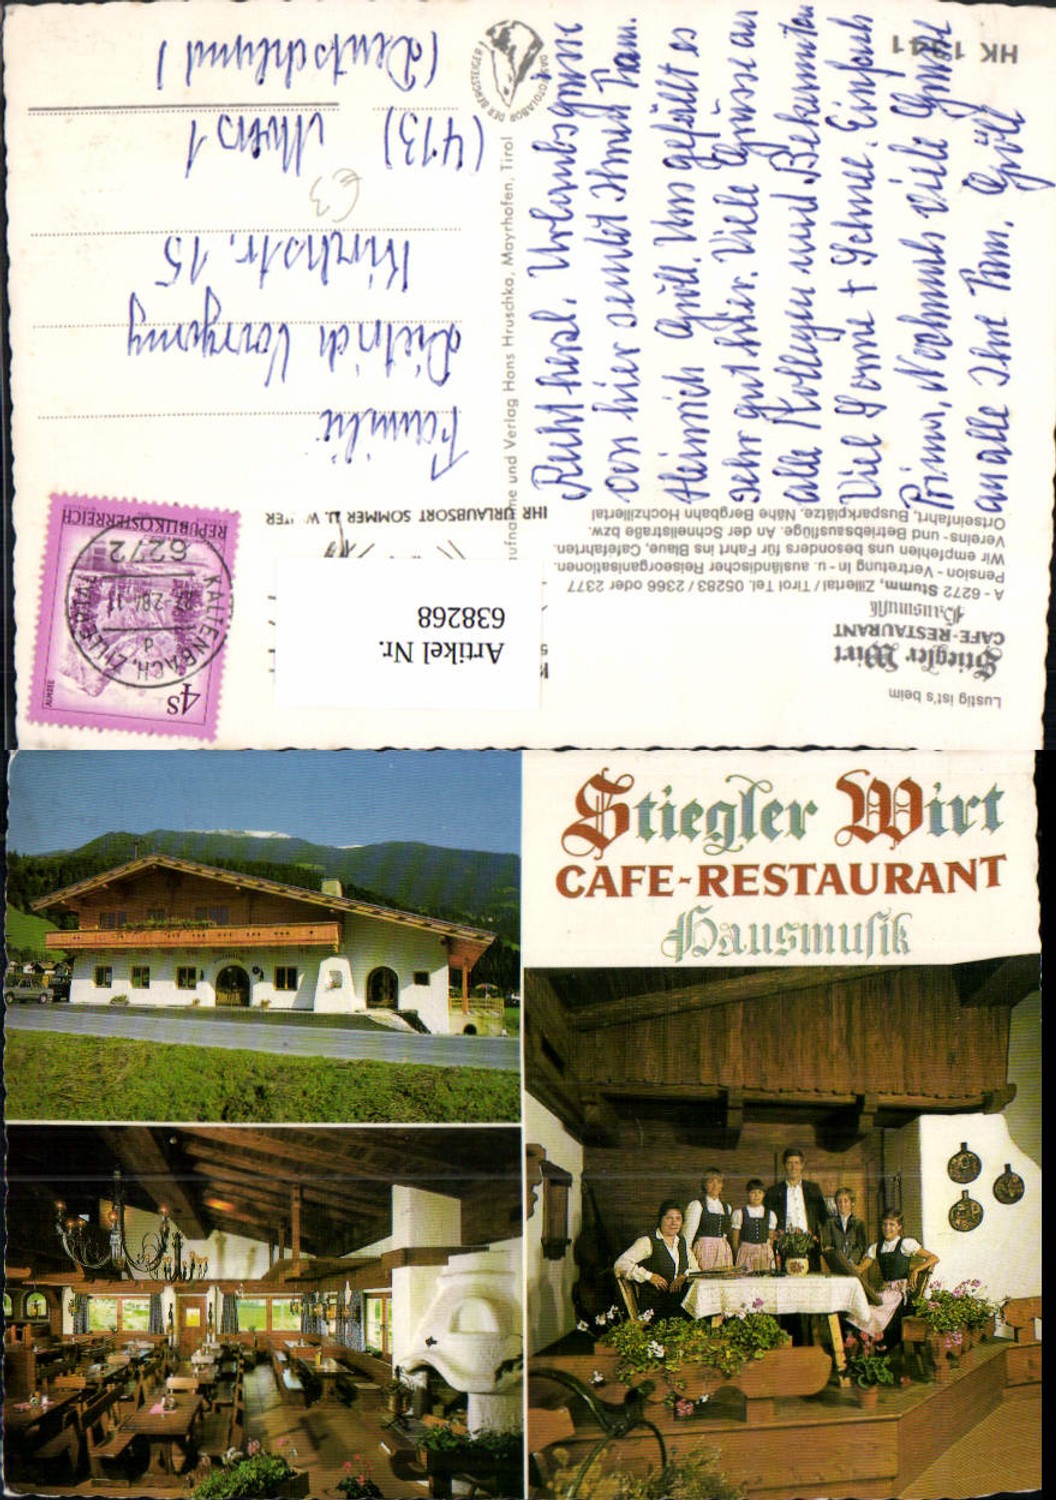 Lustig ist's beim
Stiegler Wirt
CAFE-RESTAURANT
Hausmusik
A - 6272 Stumm, Zillertal / Tirol Tel. 05283 / 2366 oder 2377
Pension - Vertretung in - u. ausländischer Reiseorganisationen.
Wir empfehlen uns besonders für Fahrt ins Blaue, Cafétfahrten.
Vereins- und Betriebsausflüge. An der Schnellstraße bzw.
Ortseinfahrt, Busparkplätze. Nähe Bergbahn Hochzillertal
Recht herzl. Urlaubsgrüsse
von hier sendet Ihnen Fam.
Heinrich Gröll. Uns gefällt es
sehr gut hier. Viele Grüsse an
alle Kollegen und Bekannten
Viel Sonne + Schnee. Einfach
Prima, Nochmals viele Grüsse
an alle Ihre Fam. Gröll
HK 1941
Aufnahme und Verlag Hans Hruschka, Mayrhofen, Tirol
DAS FOTOLABOR DER BERGSTEIGER
Artikel Nr.
638268
IHR URLAUBSORT SOMMER U. WINTER
4S
ALMSEE
REPUBLIK ÖSTERREICH
KALTENBACH, ZILLERTAL
6272
Familie
Dietrich
Kirchstr. 15
(413) Moers 1
(Deutschland)
€3
Stiegler Wirt
CAFE-RESTAURANT
Hausmusik